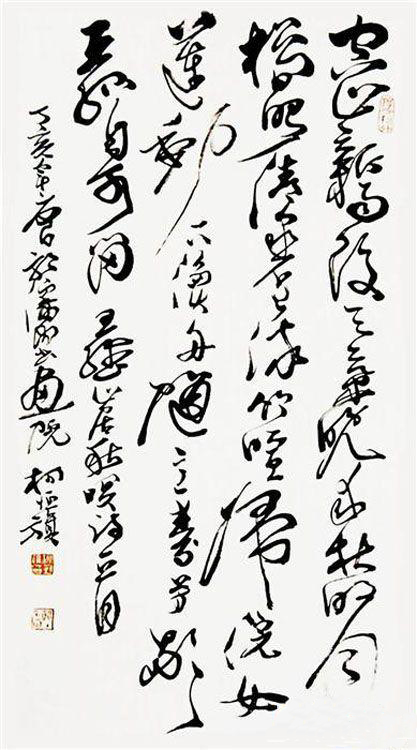 空山新雨後天氣晚来秋明月
松間照清泉石上流竹喧歸浣女
蓮動下漁舟隨意春芳歇
王孫自可留王維山居秋暝詩一首
丁亥年於瀟湘書畫院